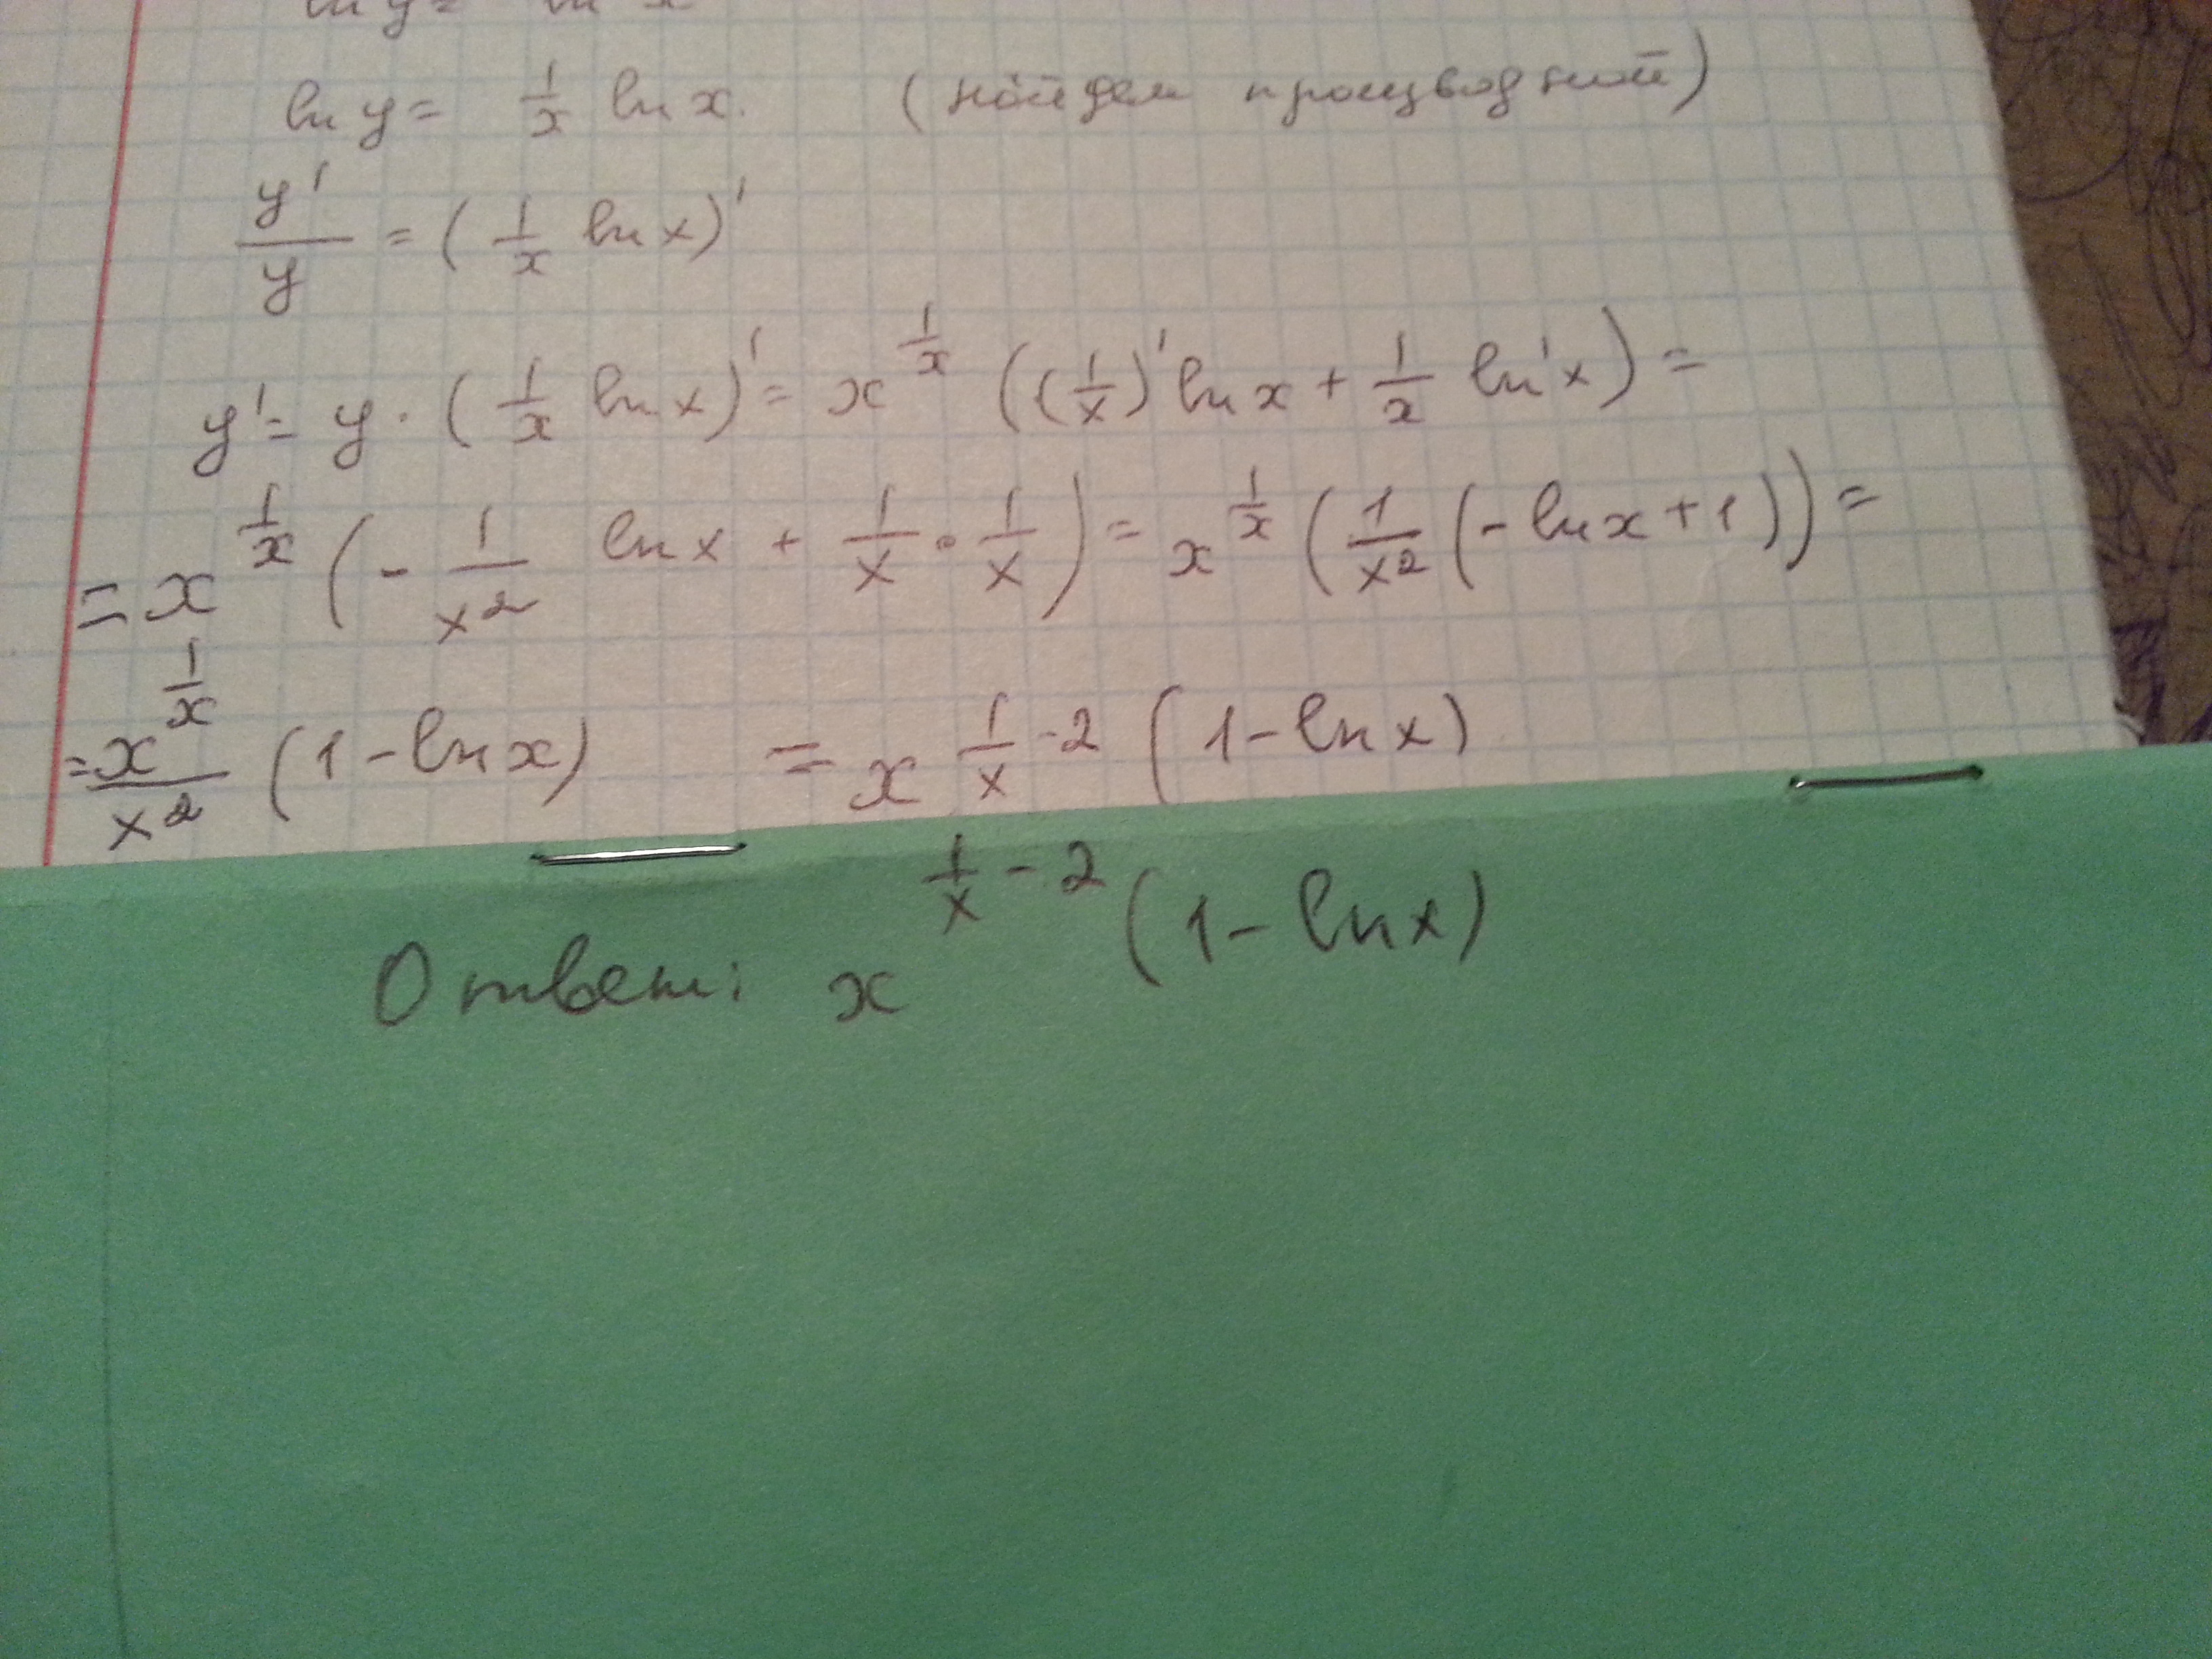 ln y = ln x
ln y = 1/x ln x. (найдем производной)
y'/y = (1/x ln x)'
y' = y · (1/x ln x)' = x^(1/x) ((1/x)' ln x + 1/x ln'x) =
= x^(1/x) (- 1/x² ln x + 1/x · 1/x) = x^(1/x) (1/x² (- ln x + 1)) =
= x^(1/x)/x² (1 - ln x) = x^(1/x - 2) (1 - ln x)
Ответ: x^(1/x - 2) (1 - ln x)